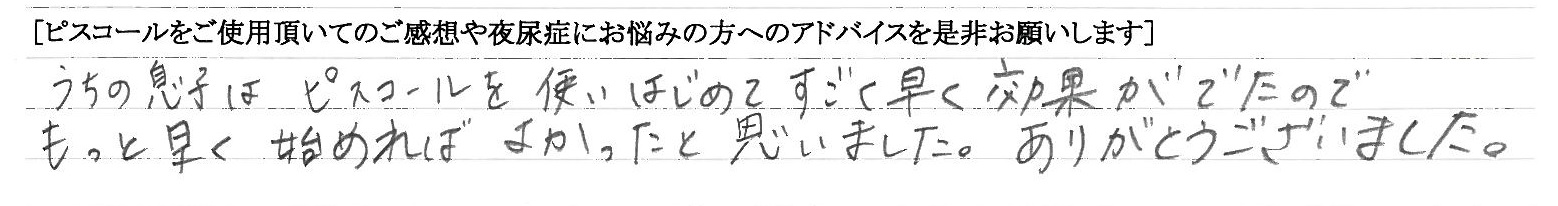 [ピスコールをご使用頂いてのご感想や夜尿症にお悩みの方へのアドバイスを是非お願いします]
うちの息子は ピスコールを 使いはじめて すごく早く 効果がでたので
もっと早く 始めれば よかったと 思いました。 ありがとうございました。